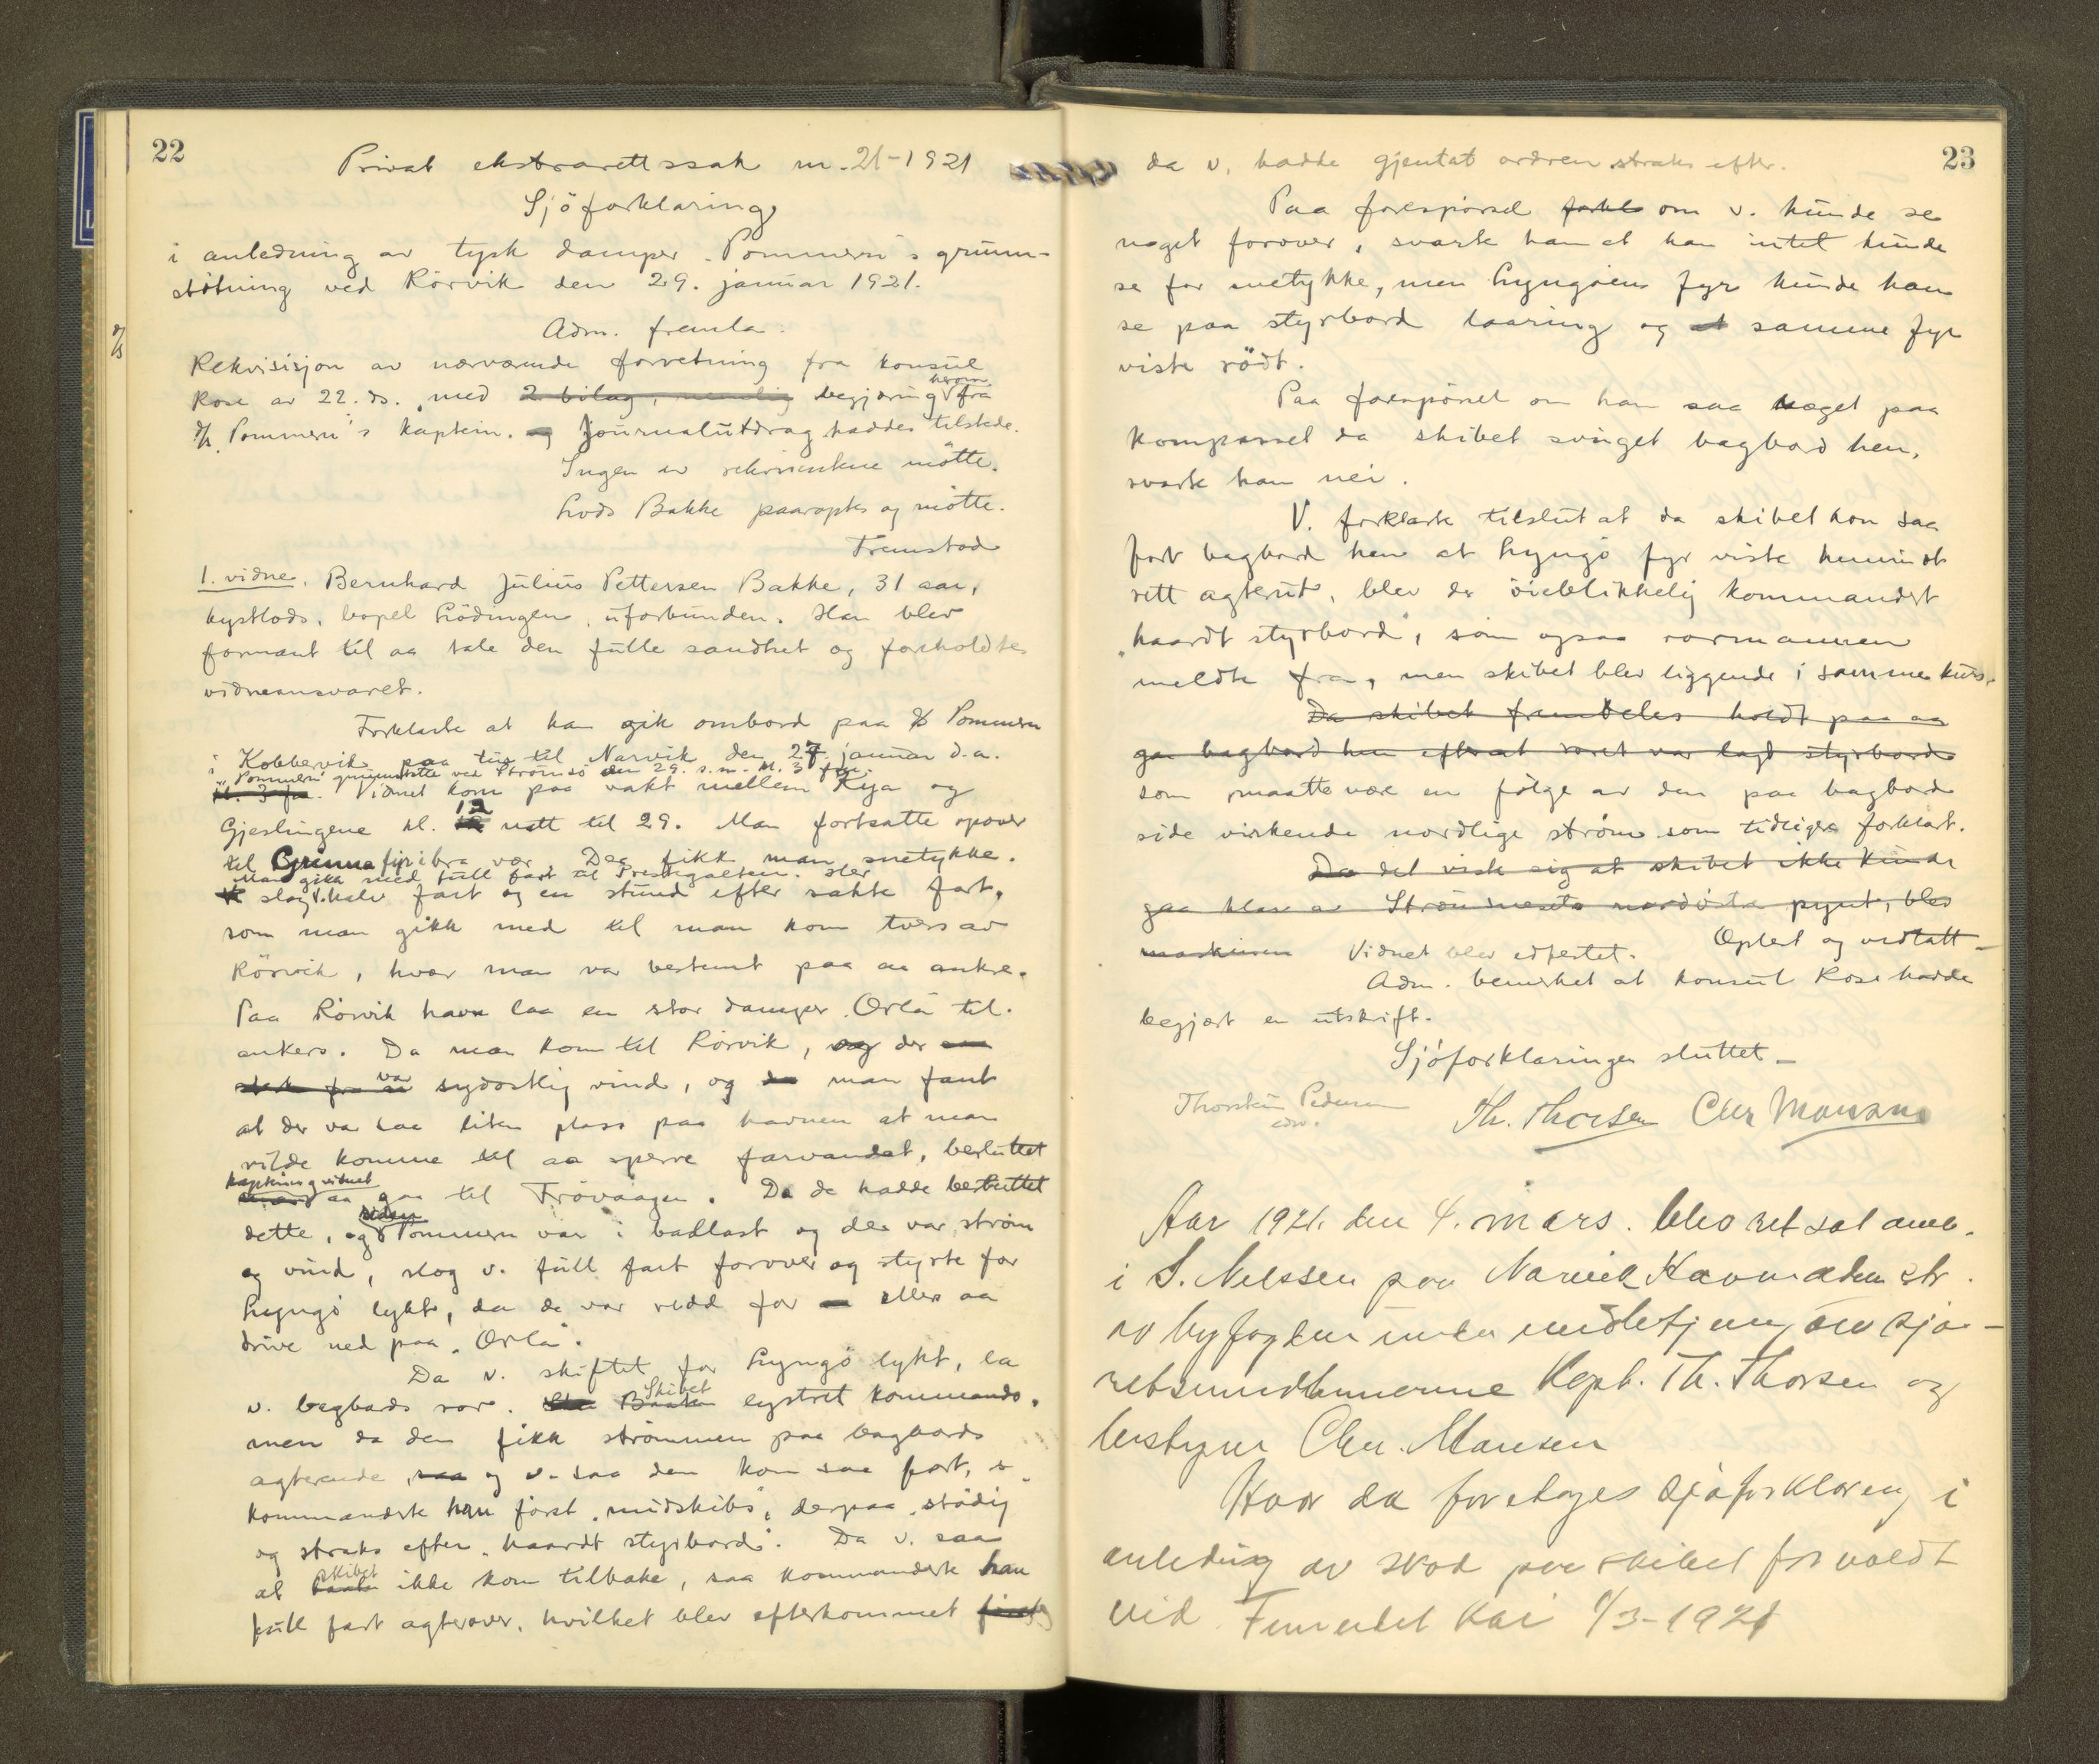 22
Privat ekstrarettssak nr. 21-1921
Sjöforklaring
i anledning av tysk damper "Pommern"s grunn-
stötning ved Rörvik den 29. januar 1921.
Adm. fremla:
Rekvisisjon av nærværende forretning fra konsul
Rose av 22. ds. med 2 bilag, nemlig begjæring herom fra
d/s "Pommern"s kaptein. og Journalutdrag haddes tilstede.
Ingen av rekvirentene mötte.
Lods Bakke paaroptes og mötte.
Fremstod
1. vidne. Bernhard Julius Pettersen Bakke, 31 aar,
kystlods, bopel Lödingen, uforbunden. Han blev
formant til aa tale den fulle sandhet og foreholdtes
vidneansvaret.
Forklarte at han gik ombord paa d/s Pommern
i Kobbervik paa tur til Narvik den 27. januar d.a.
"Pommern" grunnstötte ved Strömsö den 29. s.m. kl. 3 fm.
kl. 3 fm. Vidnet kom paa vakt mellem Kya og
Gjeslingene kl. 12 natt til 29. Man fortsatte opover
til Grinna fyr i bra vær. Der fikk man snetykke.
Man gikk med full fart til Prestegalten. Her
slog v. halv fart og en stund efter sakte fart,
som man gikk med til man kom tvers av
Rörvik, hvor man var bestemt paa aa ankre.
Paa Rörvik havn laa en stor damper "Orla" til
ankers. Da man kom til Rörvik, og der
var sydostlig vind, og da man fant
at der var saa liten plass paa havnen at man
vilde komme til aa sperre farvandet, besluttet
kaptein og vidnet aa gaa til Frövaagen. Da de hadde besluttet
dette, og siden Pommern var i ballast og der var ström
og vind, slog v. full fart forover og styrte for
Lyngö lykt, da de var redd for ellers aa
drive ned paa "Orla".
Da v. skiftet for Lyngö lykt, la
v. bagbords ror. Skibet lystret kommando,
men da den fikk strömmen paa bagbords
agterende, saa og v. saa den kom saa fort,
kommanderte han först "midskibs", derpaa "stödig"
og straks efter "haardt styrbord". Da v. saa
at skibet ikke kom tilbake, saa kommanderte han
full fart agterover, hvilket blev efterkommet
23
da v. hadde gjentat ordren straks efter.
Paa forespörsel om v. kunde se
noget forover, svarte han at han intet kunde
se for snetykke, men Lyngöens fyr kunde han
se paa styrbord laaring og at samme fyr
viste rödt.
Paa forespörsel om han saa noget paa
kompasset da skibet svinget bagbord hen,
svarte han nei.
V. forklarte tilslut at da skibet kom saa
fort bagbord hen at Lyngö fyr viste henimot
rett agterut, blev der öieblikkelig kommandert
"haardt styrbord", som ogsaa rormannen
meldte fra, men skibet blev liggende i samme kurs,
Da skibet fremdeles holdt paa aa
gaa bagbord hen efterat roret var lagd styrbord
som maatte være en fölge av den paa bagbord
side virkende nordlige ström som tidligere forklart.
Da det viste sig at skibet ikke kunde
gaa klar av Strömnesets nordöstre pynt, blev
maskinen Vidnet blev edfestet. Oplest og vedtatt.
Adm. bemerket at konsul Rose hadde
begjært en utskrift.
Sjöforklaringen sluttet.
Thorstein Pedersen Th. Thorsen Chr Monsen
edv.
Aar 1921. den 4. mars. blev ret sat
i S. Nilssen paa Narvik
av byfogden under
Kapt. Th. Thorsen og
Chr. Mansen
Hvor da foretoges sjöforklaring i
anledning av skad paa skibet forvoldt
ved kai 1/3-1921